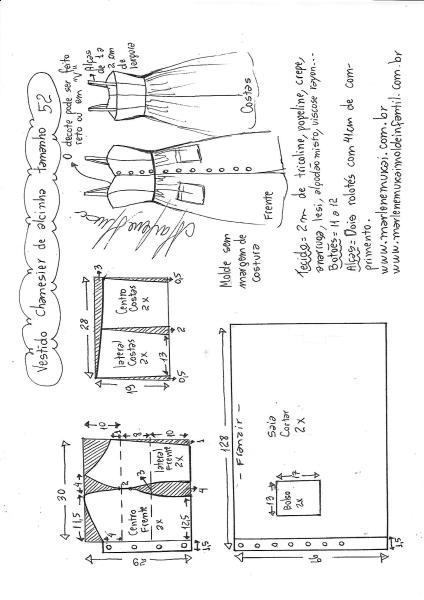 Vestido Chamesier de alcinha tamanho 52
O decote pode ser feito
reto ou em "V"
Alças
de 1 a
2 cm
de
largura
Costas
Frente
Molde sem
margem de
costura
Tecido = 2 m de tricoline, popeline, crepe,
anarruga, lesi, algodão misto, viscose rayon...
Botões = 11 a 12
Alças = Dois rolotês com 41cm de com-
primento.
www.marlenemukai.com.br
www.marlenemukaimoldeinfantil.com.br
28
3
Centro
Costas
2x
lateral
Costas
2x
19
13
0,5
2
0,5
30
11,5
4
10
4
2
3
8
10
1
lateral
Frente
2x
Centro
Frente
2x
12,5
4
1,5
128
- Franzir -
Saia
Cortar
2x
13
17
Bolso
2x
1,5